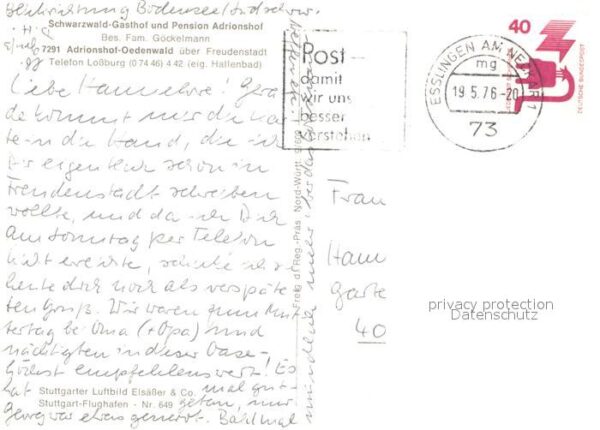 Schwarzwald-Gasthof und Pension Adrionshof
Bes. Fam. Göckelmann
7291 Adrionshof-Oedenwald über Freudenstadt
Telefon Loßburg (0 74 46) 4 42 (eig. Hallenbad)
Liebe Hannelore! Gera-
de kommt mir die Kar-
te in die Hand, die ich
Dir eigentlich schon in
Freudenstadt schreiben
wollte, und da ich Dich
am Sonntag per Telefon
nicht erreichte, schicke ich sie
heute doch noch als verspäte-
ten Gruß. Wir waren zum Mut-
tertag bei Oma (+ Opa) und
nächtigten in dieser Oase -
höchst empfehlenswert! Es
hat mal gut
getan, nur
Georg war etwas genervt. Bald mal
Stuttgarter Luftbild Elsäßer & Co.
Stuttgart-Flughafen - Nr. 649
Freig. d. Reg.-Präs. Nord-Württ.
Post -
damit
wir uns
besser
verstehen
ESSLINGEN AM NECKAR 1
mg
19.5.76-20
73
40
DEUTSCHE BUNDESPOST
Frau
Hann
Garte
40
privacy protection
Datenschutz